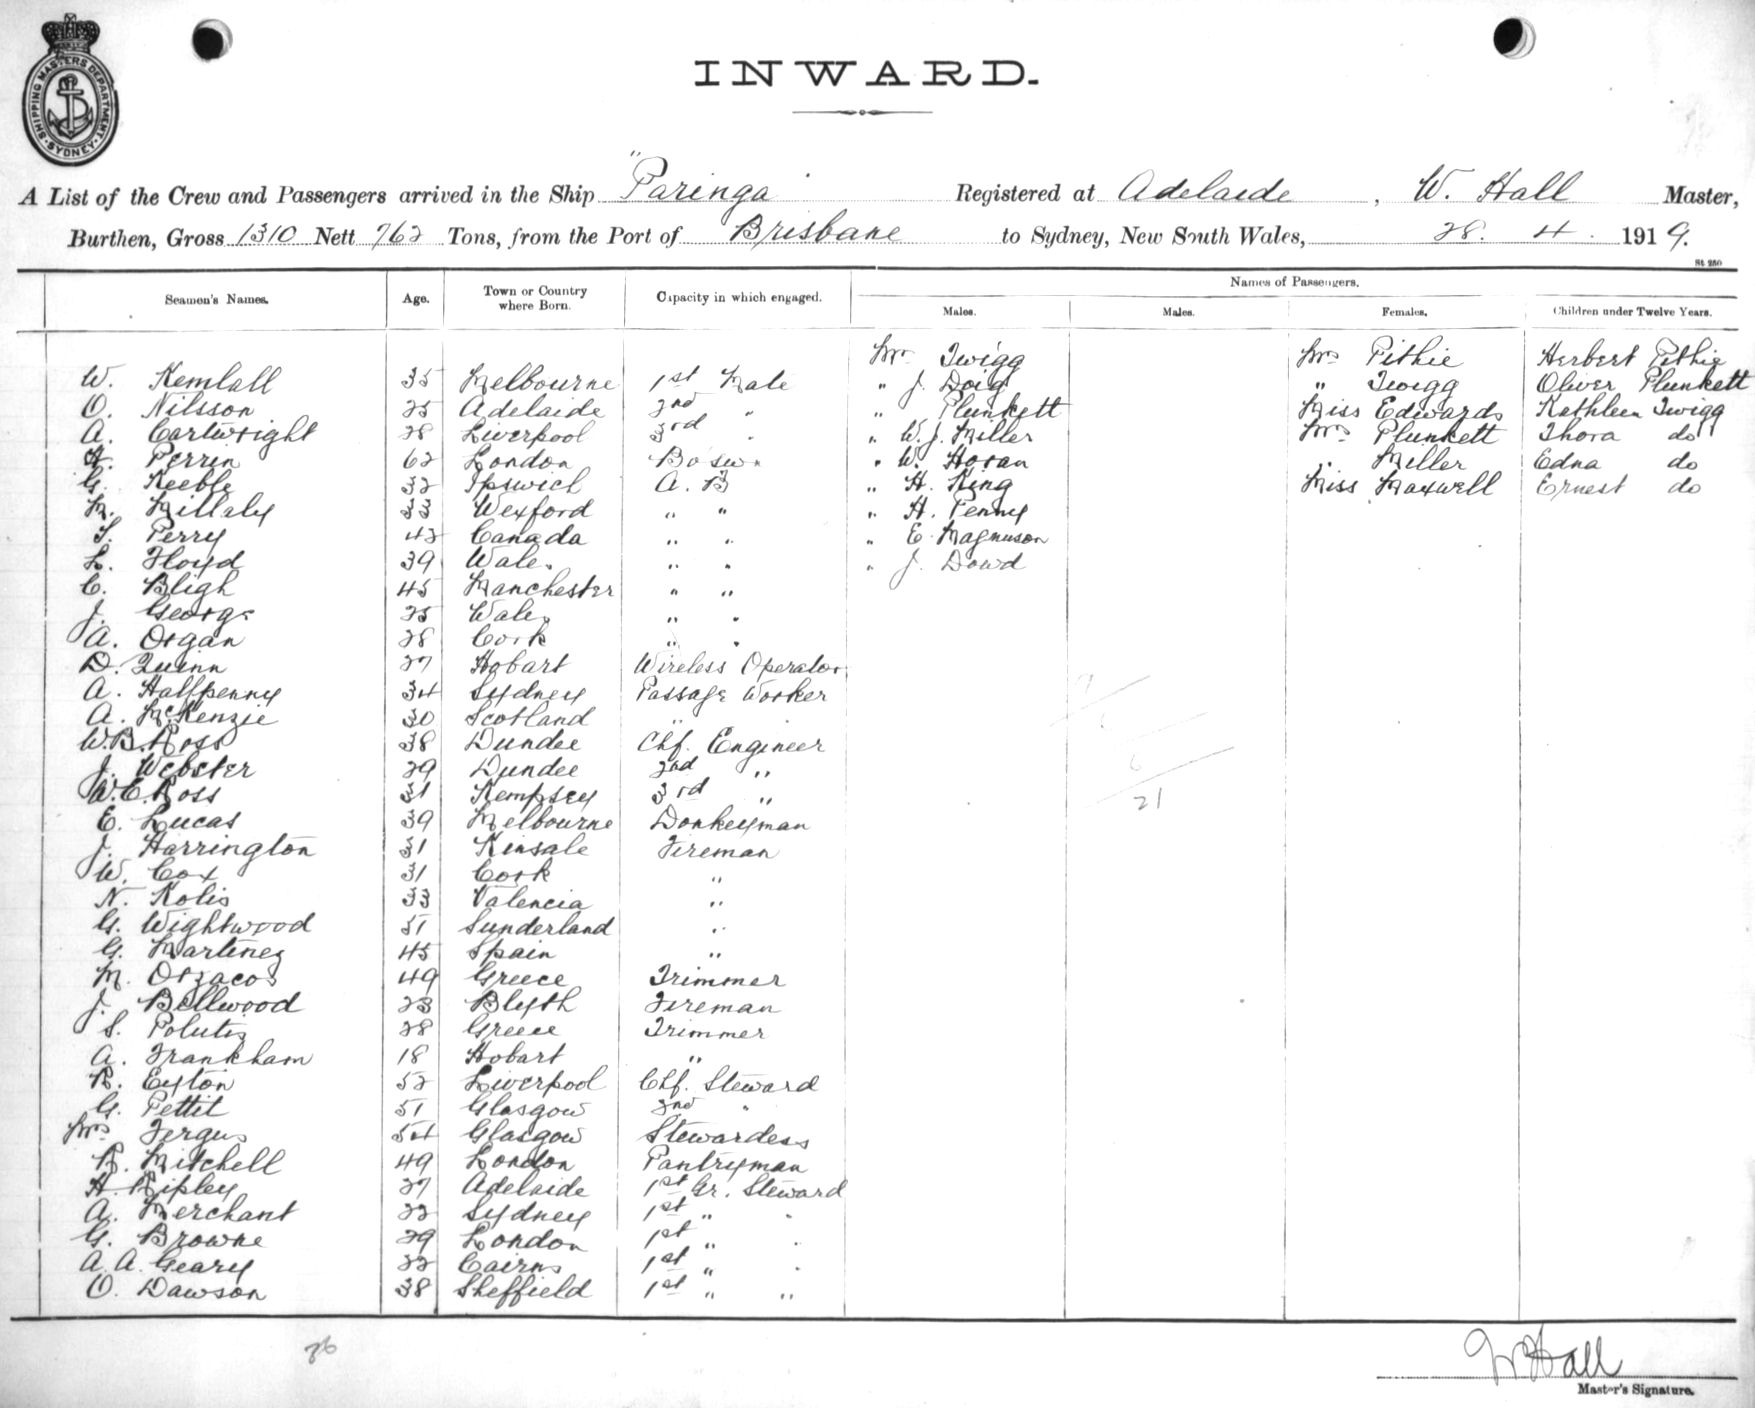 SHIPPING MASTERS DEPARTMENT SYDNEY
INWARD.
A List of the Crew and Passengers arrived in the Ship "Paringa" Registered at Adelaide, W. Hall Master,
Burthen, Gross 1310 Nett 762 Tons, from the Port of Brisbane to Sydney, New South Wales, 28. 4. 1919.
St. 250
Seamen's Names. Age. Town or Country where Born. Capacity in which engaged. Names of Passengers.
Males. Males. Females. Children under Twelve Years.
Mr Twigg Mrs Pithie Herbert Pithie
W. Kemball 35 Melbourne 1st Mate " J. Doig " Twigg Oliver Plunkett
O. Nilsson 25 Adelaide 2nd " " Plunkett Miss Edwards Kathleen Twigg
A. Cartwright 28 Liverpool 3rd " " W. J. Miller Mrs Plunkett Thora do
H. Perrin 62 London Bo'sun " W. Horan " Miller Edna do
G. Keeble 32 Ipswich A. B " H. King Miss Maxwell Ernest do
M. Millaly 33 Wexford " " " H. Penny
T. Perry 42 Canada " " " E. Magnuson
L. Floyd 39 Wales " " " J. Dowd
C. Bligh 45 Manchester " "
J. George 25 Wales " "
A. Organ 28 Cork " "
D. Quinn 27 Hobart Wireless Operator
A. Halfpenny 34 Sydney Passage Worker
A. McKenzie 30 Scotland " "
W. B. Ross 38 Dundee Chf. Engineer
J. Webster 29 Dundee 2nd "
W. E. Ross 31 Kempsey 3rd "
E. Lucas 39 Melbourne Donkeyman
J. Harrington 31 Kinsale Fireman
W. Cox 31 Cork "
N. Kolis 33 Valencia "
G. Wightwood 51 Sunderland "
G. Martinez 45 Spain "
M. Orzacos 49 Greece Trimmer
J. Bellwood 23 Blyth Fireman
S. Polutis 28 Greece Trimmer
A. Frankham 18 Hobart "
R. Eyton 52 Liverpool Chf. Steward
G. Pettit 51 Glasgow 2nd "
Mrs Fergus 54 Glasgow Stewardess
R. Mitchell 49 London Pantryman
H. Ripley 27 Adelaide 1st Gr. Steward
A. Merchant 22 Sydney 1st " "
G. Browne 29 London 1st " "
A. A. Geary 22 Cairns 1st " "
O. Dawson 38 Sheffield 1st " "
9
6
6
21
36
W Hall
Master's Signature.